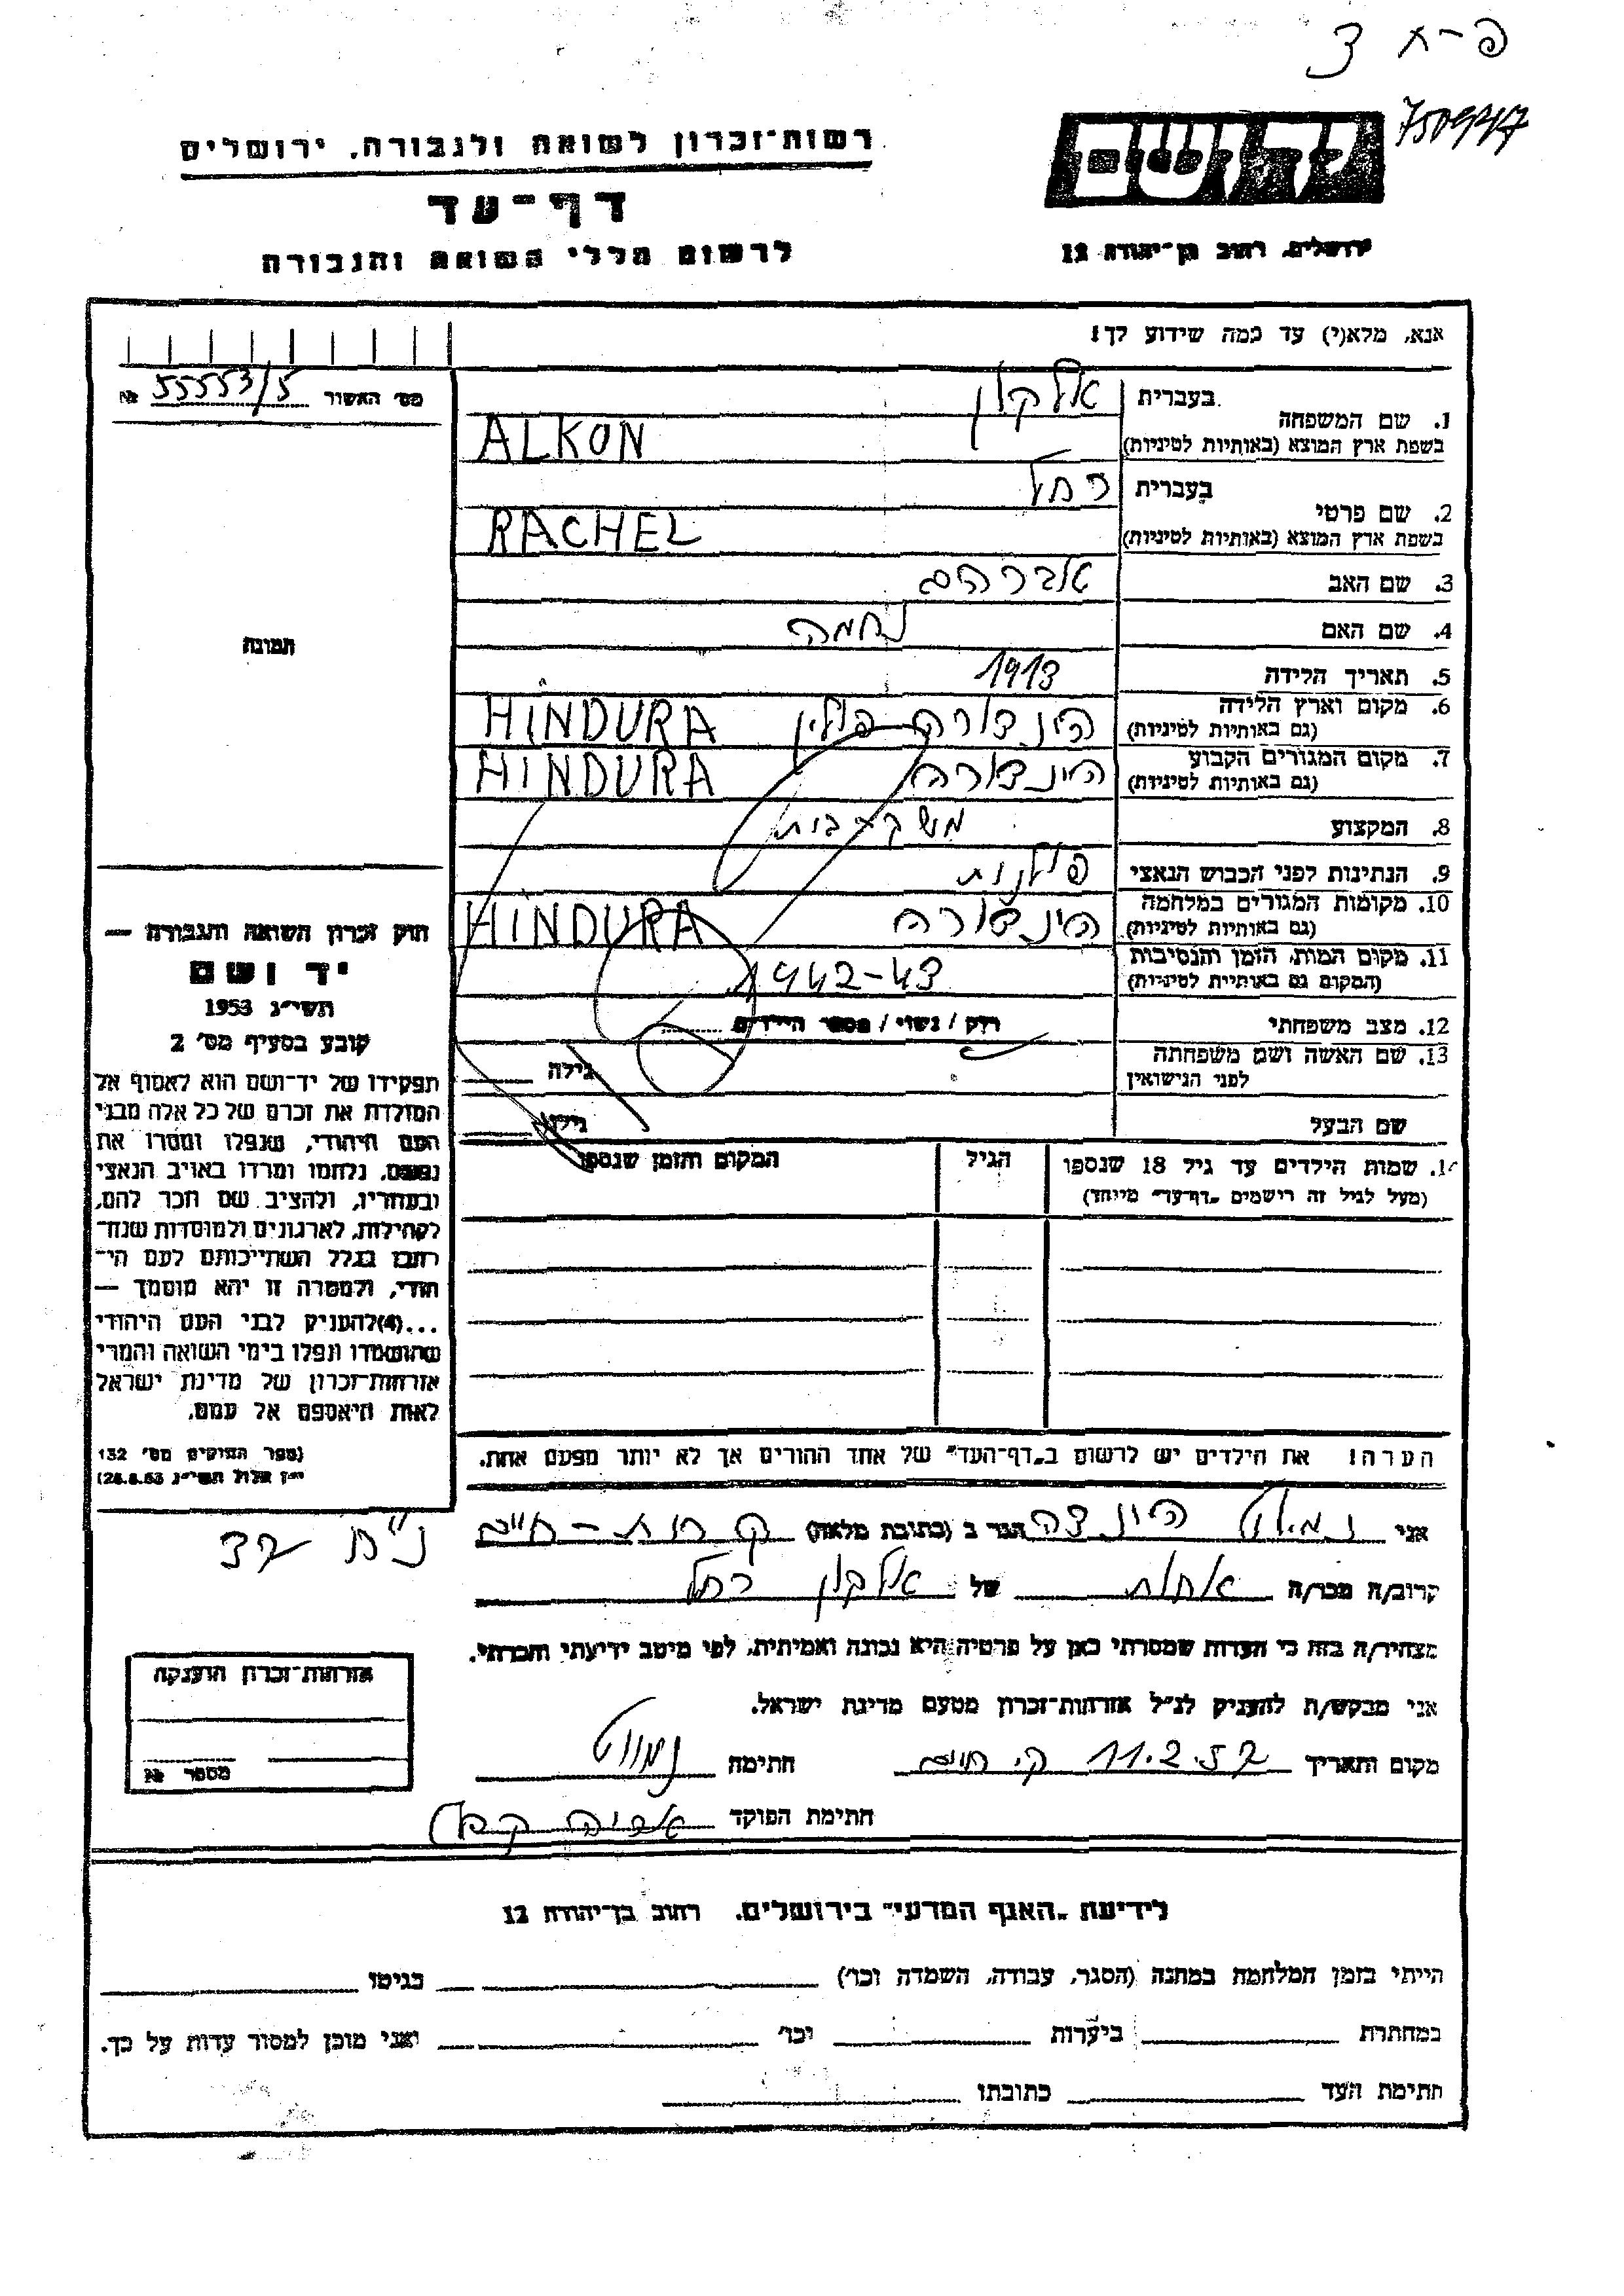 פ-ח 3
750947
יד ושם
ירושלים, רחוב בן-יהודה 12
רשות-זכרון לשואה ולגבורה, ירושלים
דף-עד
לרשום חללי השואה והגבורה
אנא, מלא(י) עד כמה שידוע לך!
מס' האשור 55553/5 №
תמונה
1. שם המשפחה
בעברית אלקון
בשפת ארץ המוצא (באותיות לטיניות) ALKON
2. שם פרטי
בעברית רחל
בשפת ארץ המוצא (באותיות לטיניות) RACHEL
3. שם האב אברהם
4. שם האם נחמה
5. תאריך הלידה 1913
6. מקום וארץ הלידה הינדורה פולין HINDURA
(גם באותיות לטיניות)
7. מקום המגורים הקבוע הינדורה HINDURA
(גם באותיות לטיניות)
8. המקצוע
9. הנתינות לפני הכבוש הנאצי פולנית
10. מקומות המגורים במלחמה הינדורה HINDURA
(גם באותיות לטיניות)
11. מקום המות, הזמן והנסיבות 1942-43
(המקום גם באותיות לטיניות)
12. מצב משפחתי רוק / נשוי / מספר הילדים
13. שם האשה ושם משפחתה
לפני הנישואין גילה
שם הבעל גילו
14. שמות הילדים עד גיל 18 שנספו הגיל המקום והזמן שנספו
(מעל לגיל זה רישמים "דף-עד" מייוחד)
הערה! את הילדים יש לרשום ב"דף-העד" של אחד ההורים אך לא יותר מפעם אחת.
חוק זכרון השואה והגבורה —
יד ושם
תשי"ג 1953
קובע בסעיף מס' 2
תפקידו של יד-ושם הוא לאסוף אל
המולדת את זכרם של כל אלה מבני
העם היהודי, שנפלו ומסרו את
נפשם, נלחמו ומרדו באויב הנאצי
ובעוזריו, ולהציב שם וזכר להם,
לקהילות, לארגונים ולמוסדות שנח-
רבו בגלל השתייכותם לעם הי-
הודי, ולמטרה זו יהא מוסמך —
...(4)להעניק לבני העם היהודי
שהושמדו ונפלו בימי השואה והמרי
אזרחות-זכרון של מדינת ישראל
לאות היאספם אל עמם.
(ספר החוקים מס' 132
י"ז אלול תשי"ג 28.8.53)
אני הינדה הגר ב (כתובת מלאה) קרית-חיים
קרוב/ה מכר/ה אחות של אלקון רחל
מצהיר/ה בזה כי העדות שמסרתי כאן על פרטיה היא נכונה ואמיתית, לפי מיטב ידיעתי והכרתי.
אני מבקש/ת להעניק לנ"ל אזרחות-זכרון מטעם מדינת ישראל.
מקום ותאריך ק. חיים 11.2.57 חתימה
חתימת הפוקד
אזרחות-זכרון הוענקה
מספר №
לידיעת "האגף המדעי" בירושלים, רחוב בן-יהודה 12
הייתי בזמן המלחמה במחנה (הסגר, עבודה, השמדה וכו') בגיטו
במחתרת ביערות וכו' ואני מוכן למסור עדות על כך.
חתימת העד כתובתו